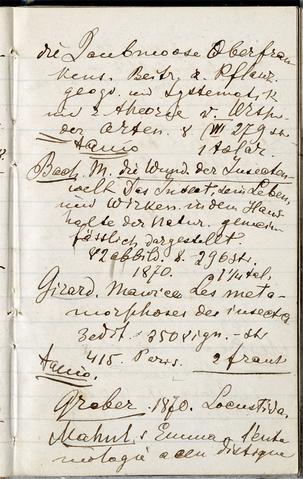 die Laubmoose Oberfran
kens. Beitr. z. Pflanz
geogr. und Systematik
und z Theorie v. 
der Arten. 8 (VII 279 st
1 tafär.
Bach, M. die Wund. der Insecten
welt Das Insect, sein Leben,
und Wirken in dem Haus
halte der Natur. gemein
fässlich dargestellt.
82 abbild. 8. 296 st.
1870.
Girard. Maurice Les meta
morphoses des insects
3 edit. 350 vign. st
415. Paris. 2 frank
Graber. 1870. Locustida.
Emma. l'ento
mologie